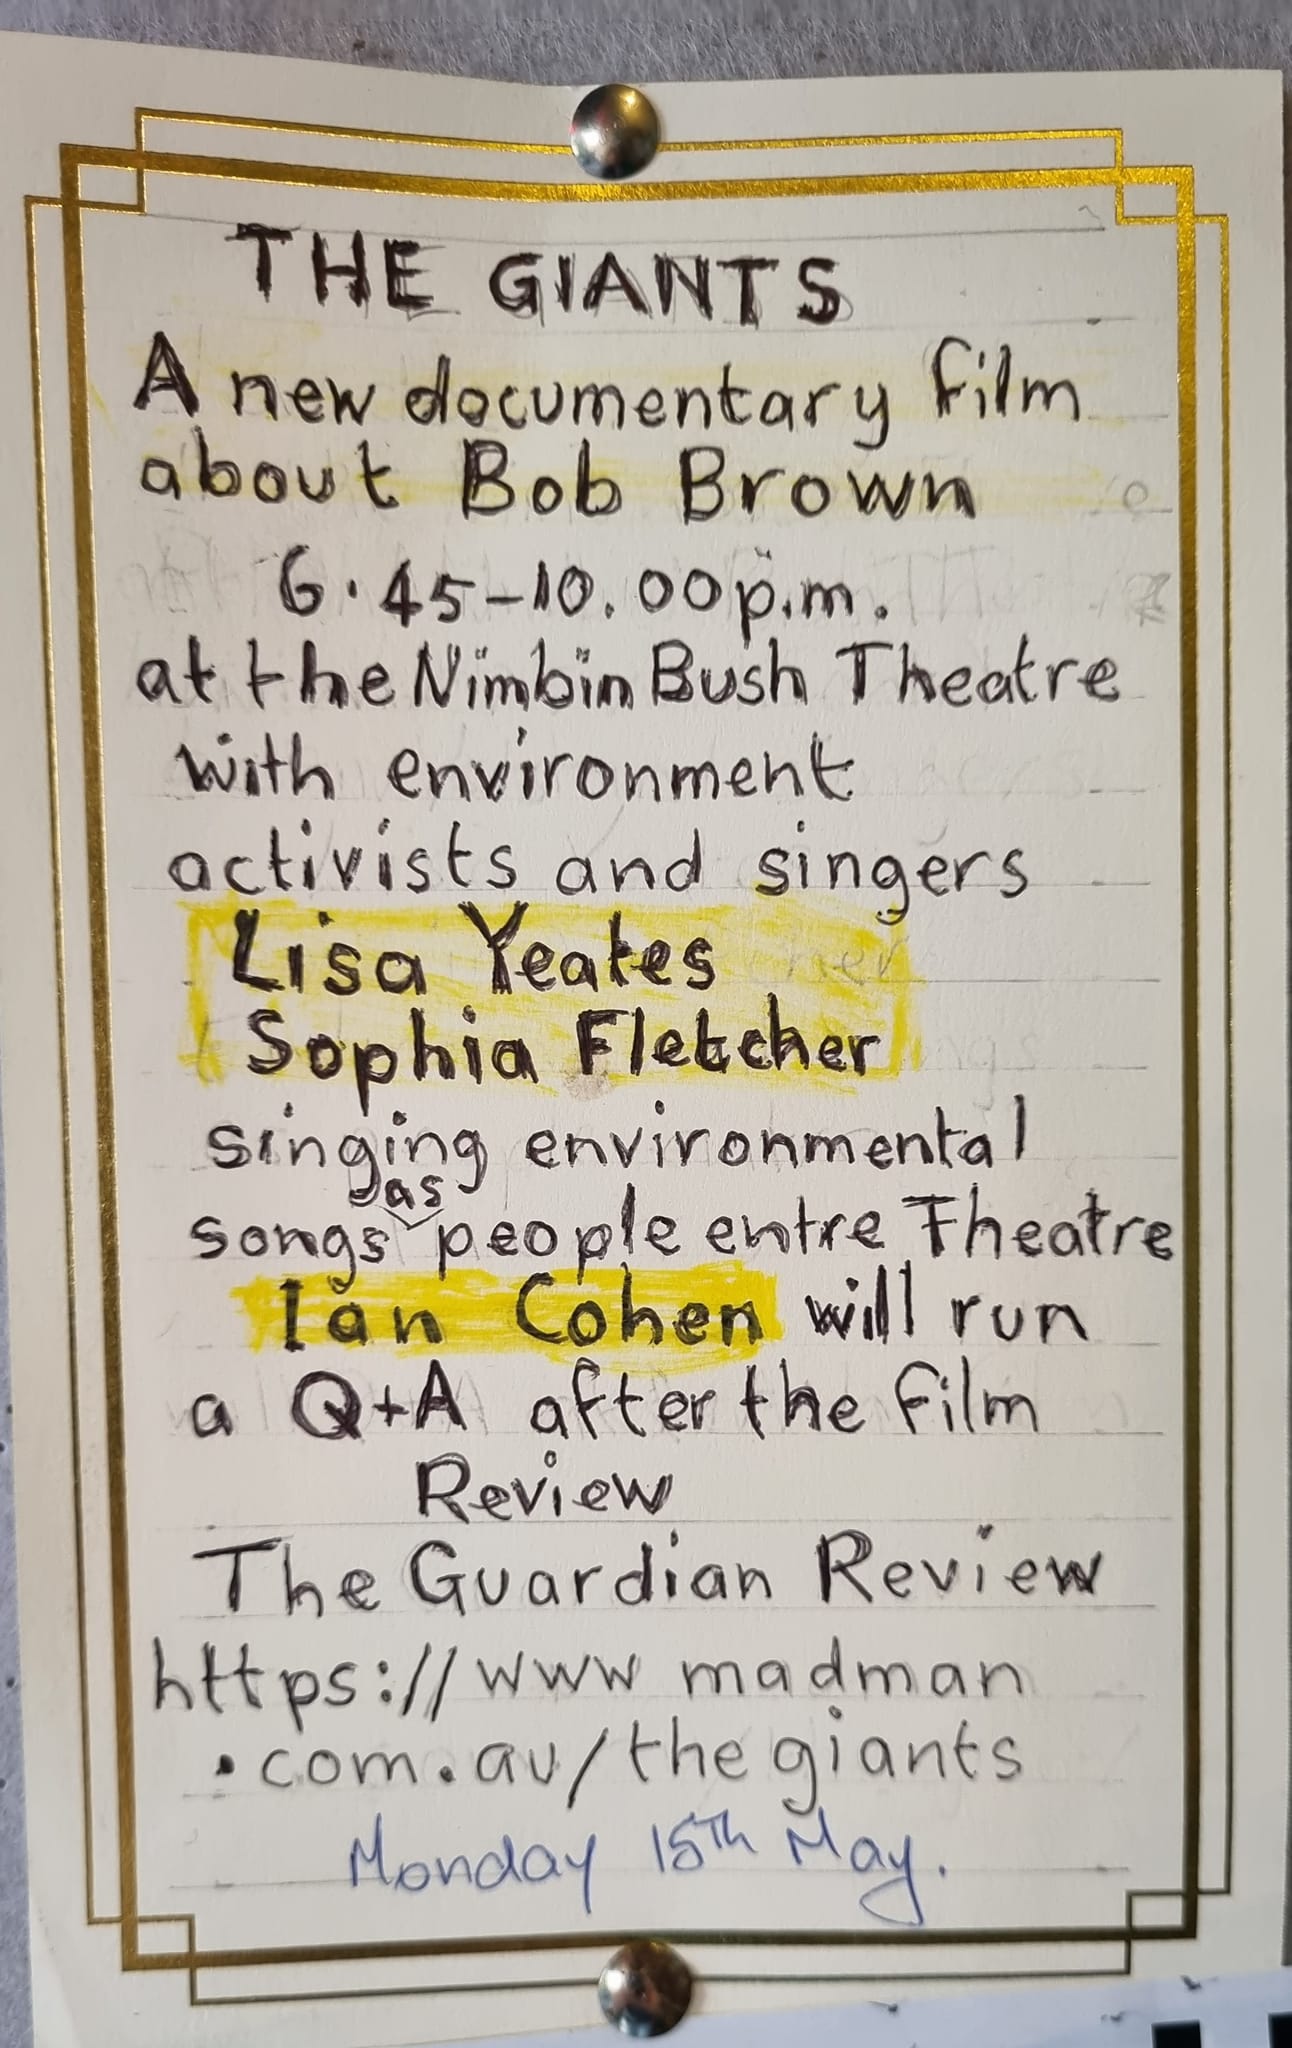 THE GIANTS
A new documentary film
about Bob Brown
6.45-10.00p.m.
at the Nimbin Bush Theatre
with environment
activists and singers
Lisa Yeates
Sophia Fletcher
singing environmental
as
songs people entre Theatre
Ian Cohen will run
a Q+A after the film
Review
The Guardian Review
https://www madman
.com.au/the giants
Monday 15Th May.